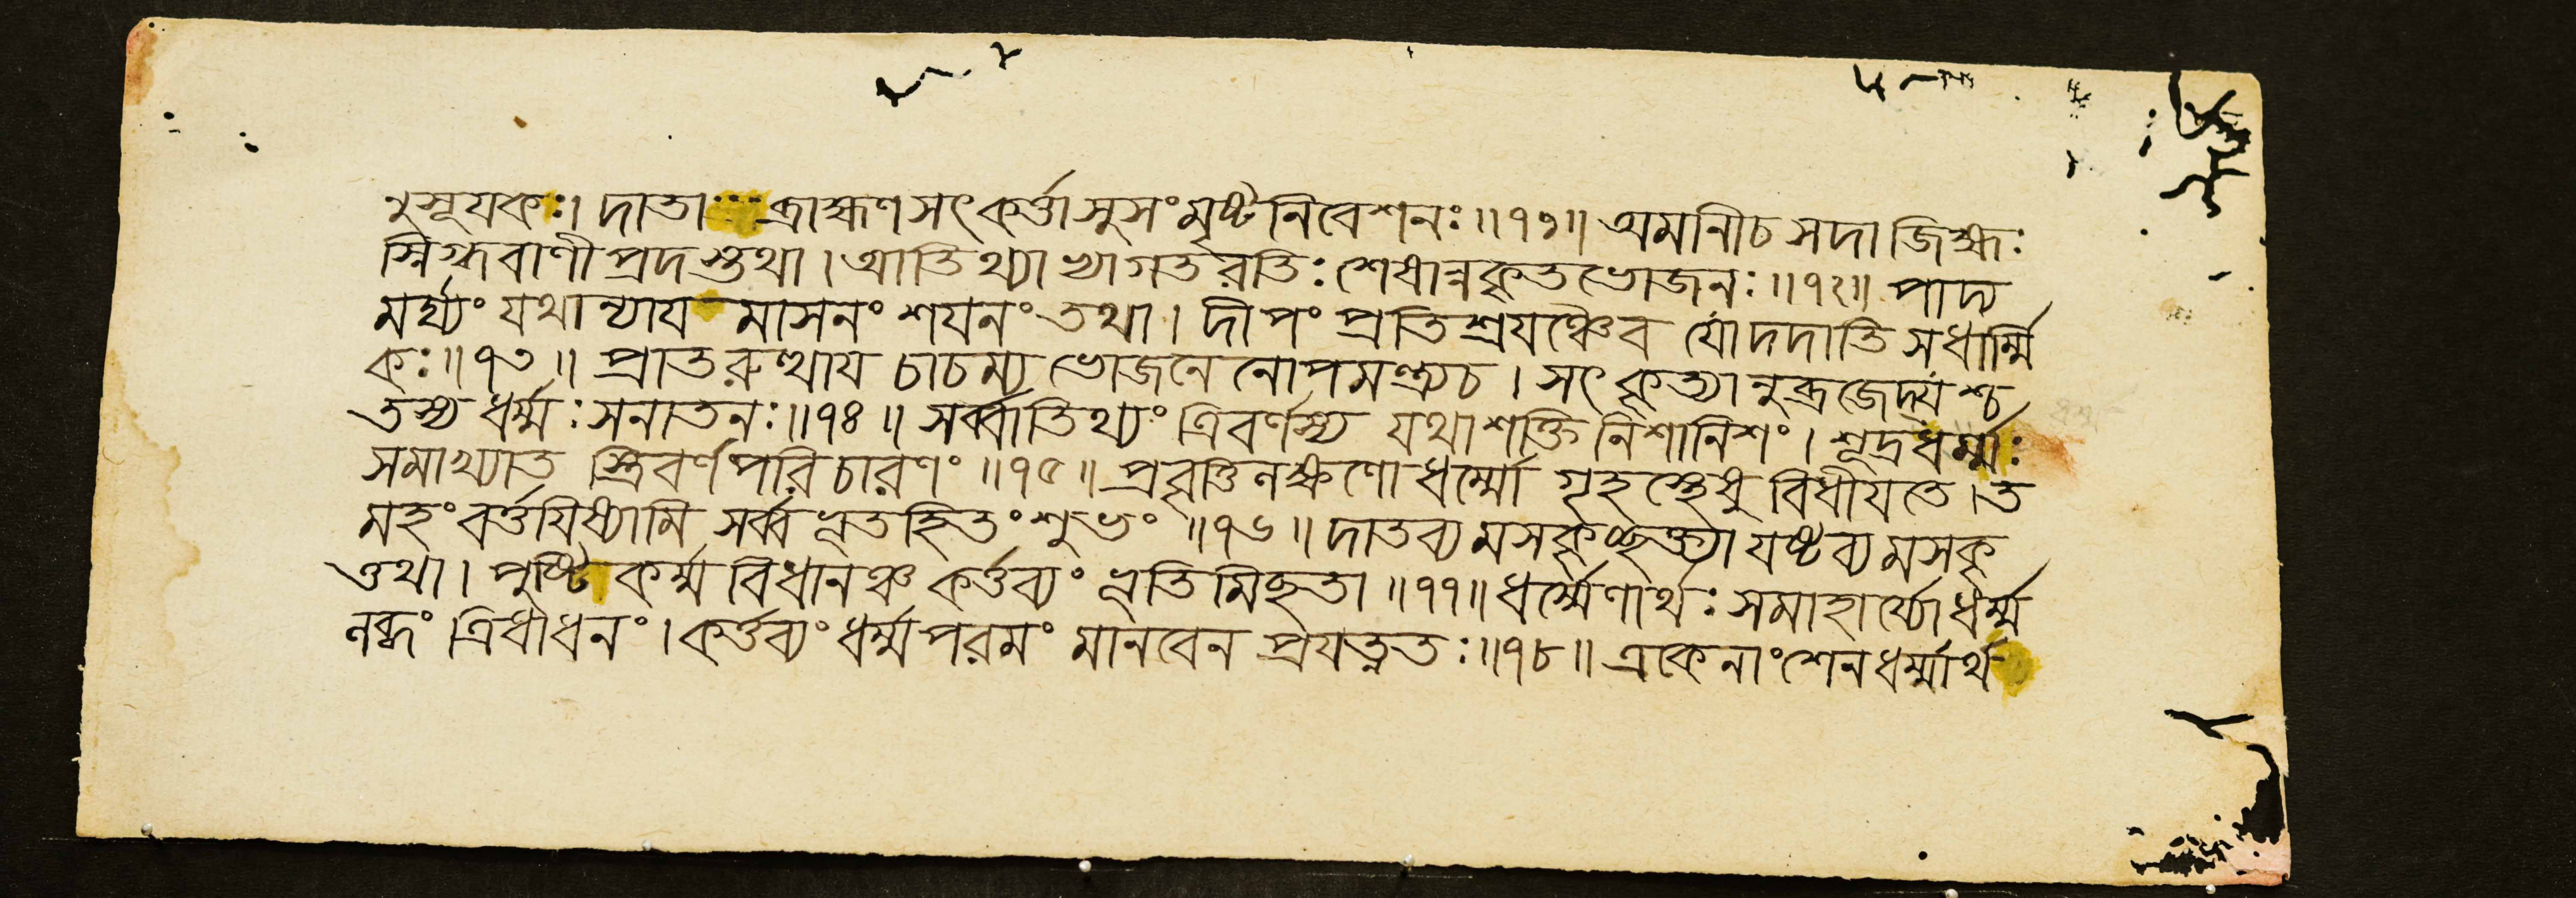 ঽসূযকঃ। দাতা ব্রাহ্মণসৎকর্ত্তা সুসংমৃষ্টনিবেশনঃ॥৭১॥ অমানীচ সদাজিহ্মঃ
স্নিগ্ধবাণীপ্রদস্তথা। আতিথ্যাভ্যাগতরতিঃ শেষান্নকৃতভোজনঃ॥৭২॥ পাদ্য
মর্ঘ্যং যথান্যায মাসনং শযনং তথা। দীপং প্রতিশ্রযঞ্চৈব যোদদাতি সধার্ম্মি
কঃ॥৭৩॥ প্রাতরুত্থায চাচম্য ভোজনেনোপমন্ত্র্যচ। সৎকৃত্যানুব্রজেদ্যশ্চ
তস্য ধর্ম্মঃ সনাতনঃ॥৭৪॥ সর্ব্বাতিথ্যং ত্রিবর্ণস্য যথাশক্তি নিশানিশং। শূদ্রধর্ম্মঃ
সমাখ্যাত স্ত্রিবর্ণপরিচারণং॥৭৫॥ প্রবৃত্তিলক্ষণো ধর্ম্মো গৃহস্থেষু বিধীযতে। ত
মহং বর্ত্তযিষ্যামি সর্ব্বভূতহিতং শুভং॥৭৬॥ দাতব্যমসকৃচ্ছক্ত্যা যষ্টব্যমসকৃ
ত্তথা। পুষ্টিকর্ম্মবিধানঞ্চ কর্ত্তব্যং ভূতিমিছতা॥৭৭॥ ধর্ম্মেণার্থঃ সমাহার্য্যো ধর্ম্ম
লব্ধং ত্রিধাধনং। কর্ত্তব্যং ধর্ম্মপরমং মানবেন প্রযত্নতঃ॥৭৮॥ একেনাংশেন ধর্ম্মার্থ